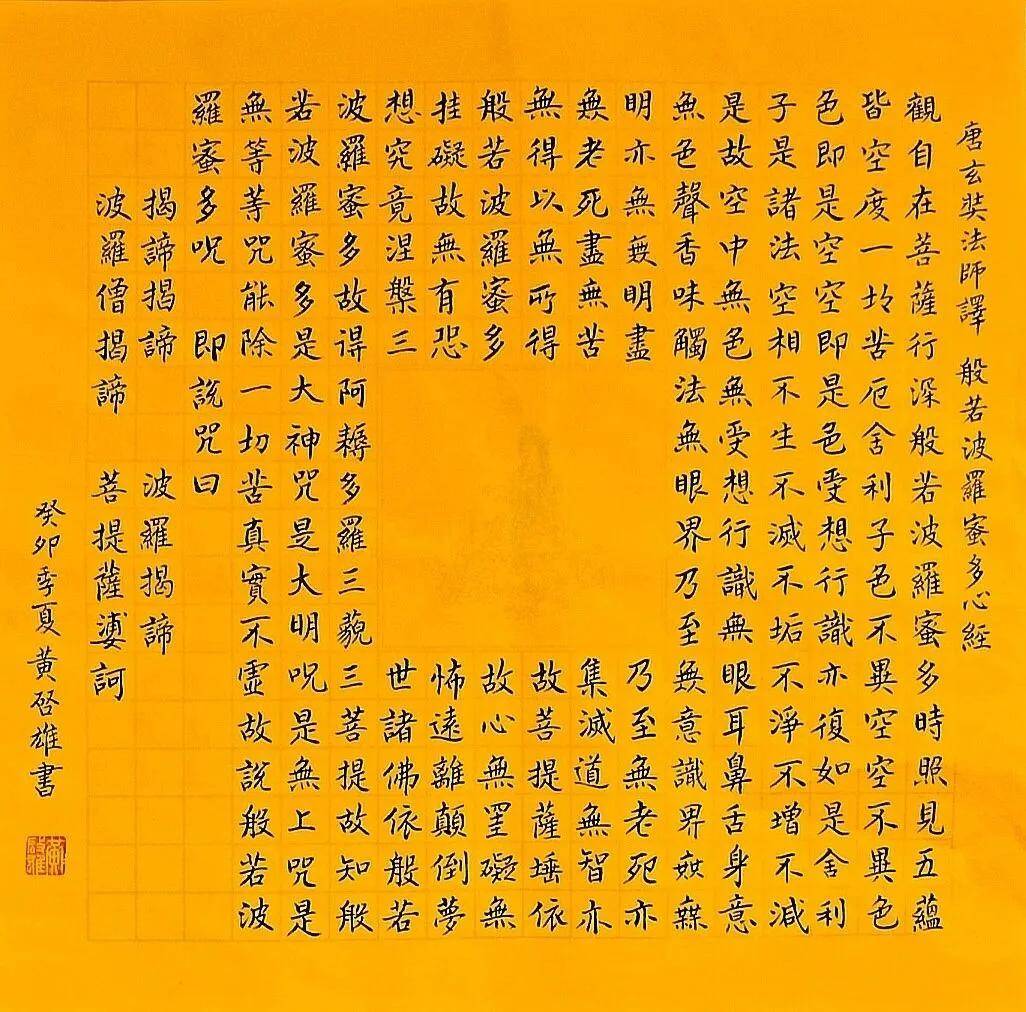 唐玄奘法師譯 般若波羅蜜多心經
觀自在菩薩行深般若波羅蜜多時照見五蘊
皆空度一切苦厄舍利子色不異空空不異色
色即是空空即是色受想行識亦復如是舍利
子是諸法空相不生不滅不垢不淨不增不減
是故空中無色無受想行識無眼耳鼻舌身意
無色聲香味觸法無眼界乃至無意識界無無
明亦無無明盡 乃至無老死亦
無老死盡無苦 集滅道無智亦
無得以無所得 故菩提薩埵依
般若波羅蜜多 故心無罣礙無
挂礙故無有恐 怖遠離顛倒夢
想究竟涅槃三 世諸佛依般若
波羅蜜多故得阿耨多羅三藐三菩提故知般
若波羅蜜多是大神咒是大明呪是無上咒是
無等等咒能除一切苦真實不虛故說般若波
羅蜜多咒 即說咒曰
揭諦揭諦 波羅揭諦
波羅僧揭諦 菩提薩婆訶
癸卯季夏黃啓雄書